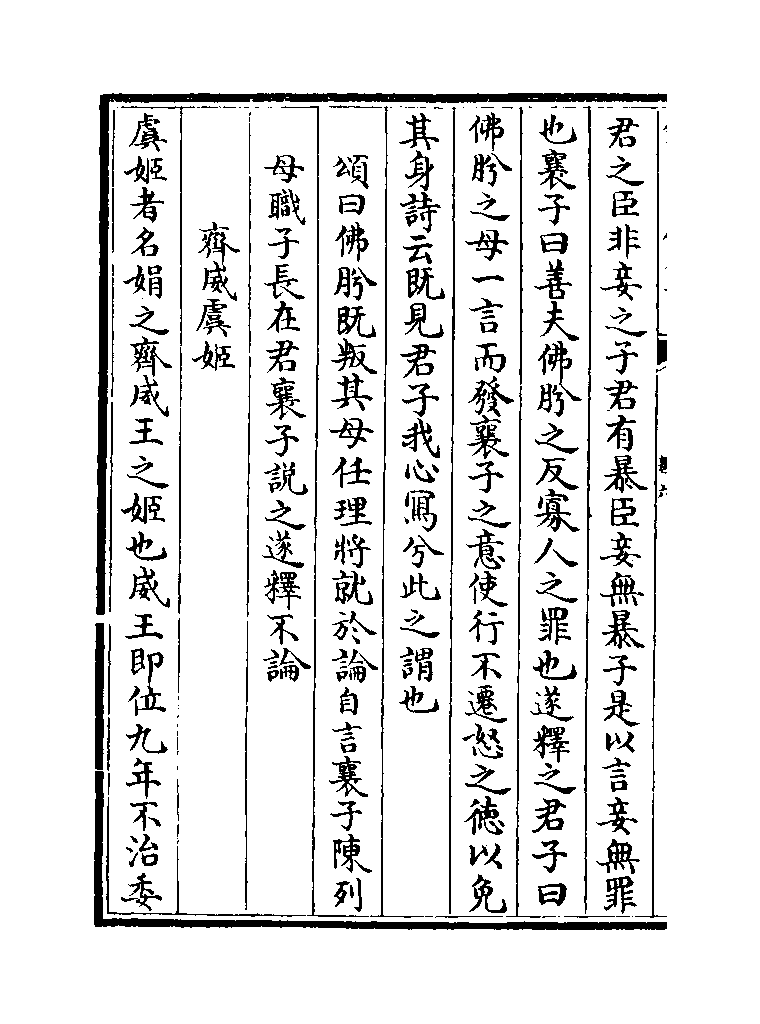 君之臣非妾之子君有暴臣妾無暴子是以言妾無罪
也襄子曰善夫佛肸之反寡人之罪也遂釋之君子曰
佛肸之母一言而發襄子之意使行不遷怒之徳以免
其身詩云既見君子我心寫兮此之謂也
頌曰佛肸既叛其母任理將就於論自言襄子陳列
母職子長在君襄子説之遂釋不論
齊威虞姬
虞姬者名娟之齊威王之姬也威王即位九年不治委